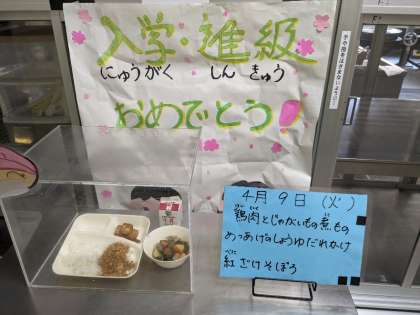 入学・進級
にゅうがく しん きゅう
おめでとう!
4月9日(火)
鶏肉とじゃがいもの煮もの
めっあげのしょうゆだれかけ
紅ざけそぼろ